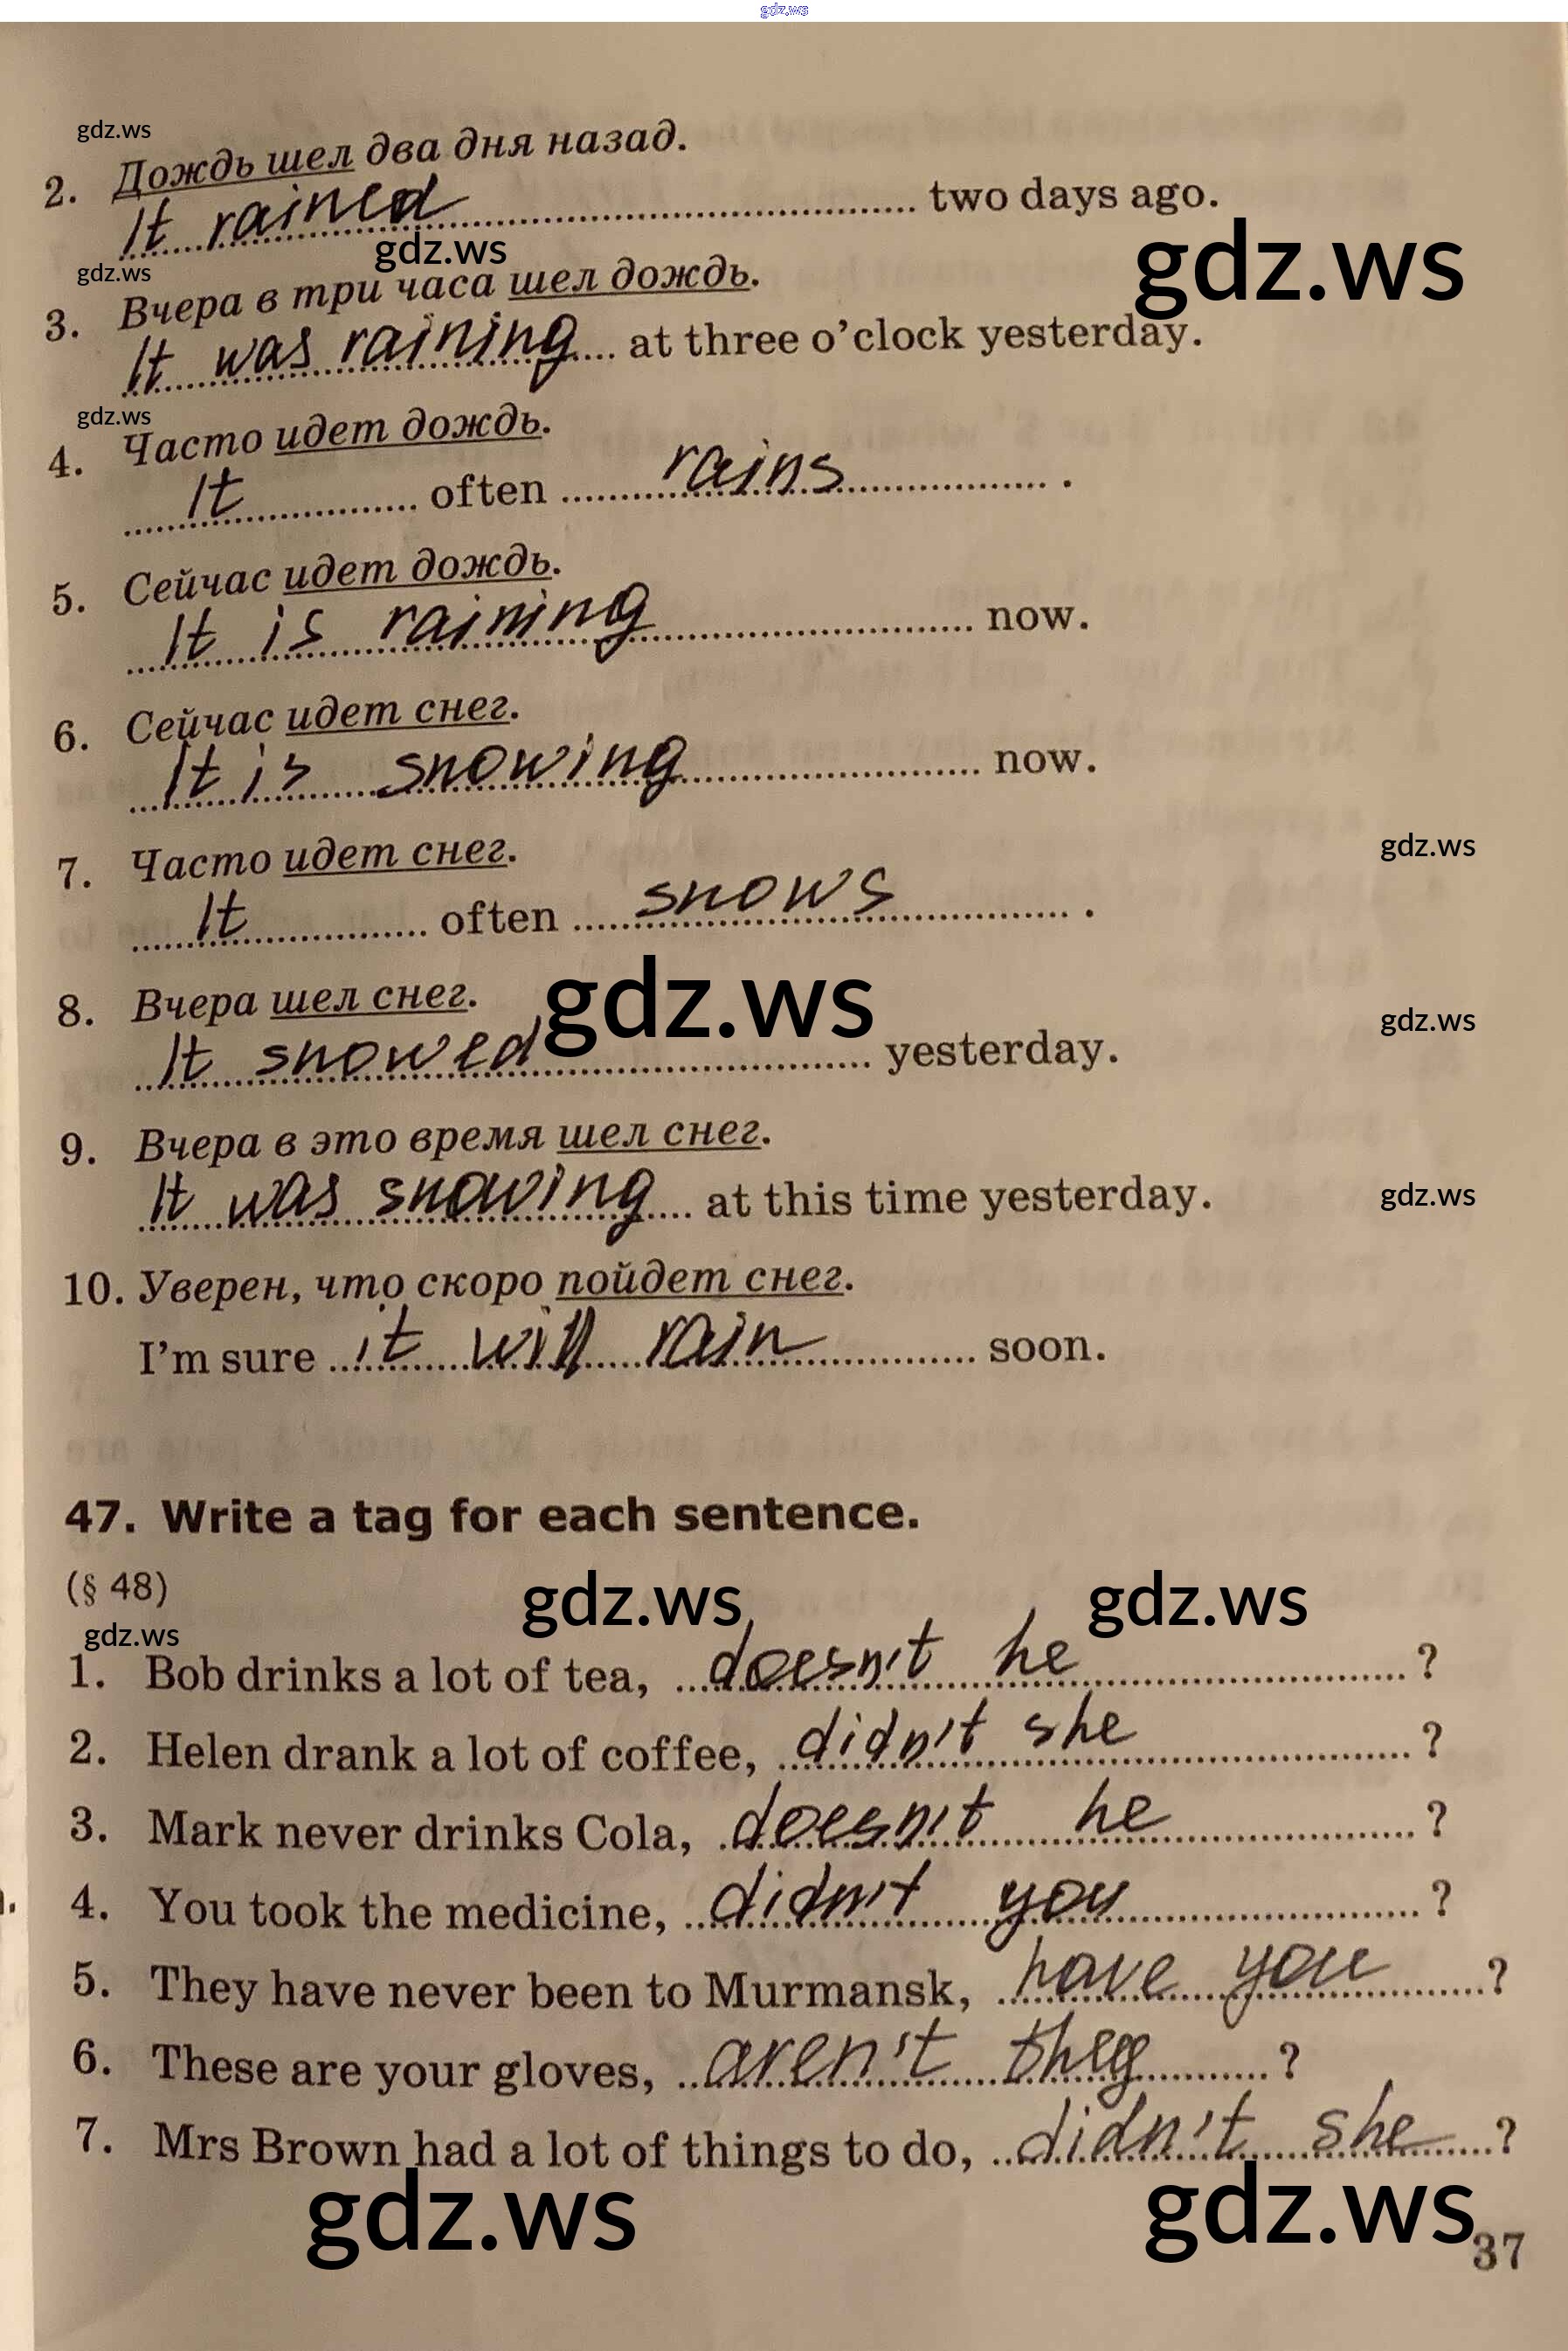 gdz.ws
gdz.ws
2. Дождь шел два дня назад.
It rained two days ago.
gdz.ws
gdz.ws
gdz.ws
3. Вчера в три часа шел дождь.
It was raining at three o'clock yesterday.
gdz.ws
4. Часто идет дождь.
It often rains.
5. Сейчас идет дождь.
It is raining now.
6. Сейчас идет снег.
It is snowing now.
gdz.ws
7. Часто идет снег.
It often snows.
gdz.ws
gdz.ws
8. Вчера шел снег.
It snowed yesterday.
9. Вчера в это время шел снег.
gdz.ws
It was snowing at this time yesterday.
10. Уверен, что скоро пойдет снег.
I'm sure it will rain soon.
47. Write a tag for each sentence.
(§ 48)
gdz.ws
gdz.ws
gdz.ws
1. Bob drinks a lot of tea, doesn't he?
2. Helen drank a lot of coffee, didn't she?
3. Mark never drinks Cola, doesn't he?
4. You took the medicine, didn't you?
5. They have never been to Murmansk, have you?
6. These are your gloves, aren't they?
7. Mrs Brown had a lot of things to do, didn't she?
gdz.ws
gdz.ws
37